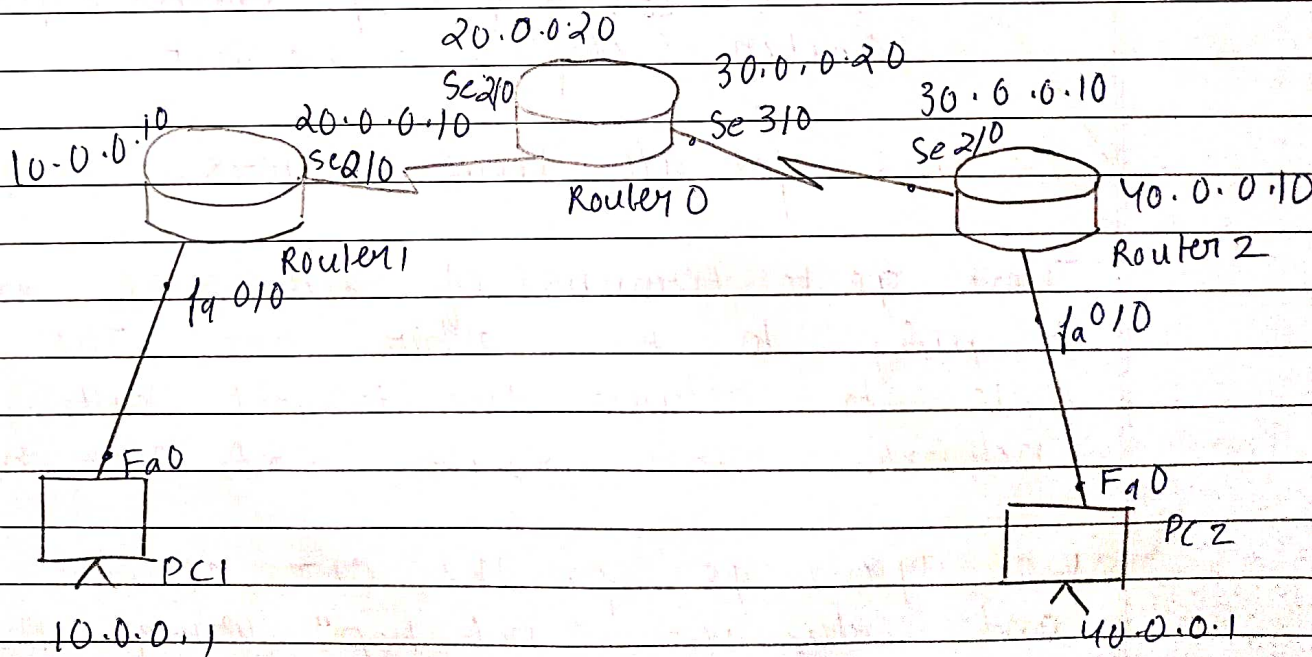 20.0.0.20
Se2/0
30.0.0.20
Se 3/0
30.0.0.10
Se 2/0
10.0.0.10
20.0.0.10
Se2/0
Router 0
40.0.0.10
Router 2
Router 1
fa 0/0
fa 0/0
Fa0
Fa0
PC1
PC2
10.0.0.1
40.0.0.1